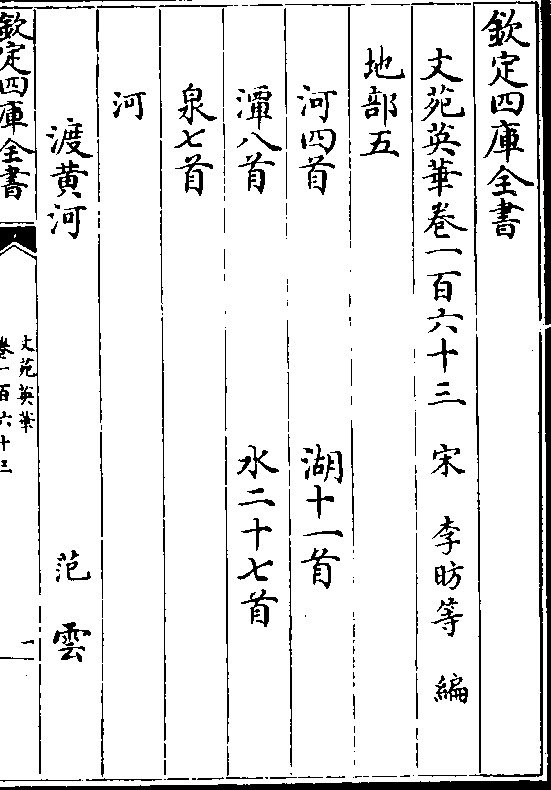 欽定四庫全書
文苑英華卷一百六十三 宋 李昉等 編
地部五
河四首 湖十一首
潭八首 水二十七首
泉七首
河
渡黄河 范雲
欽定四庫全書
文苑英華
卷一百六十三
一